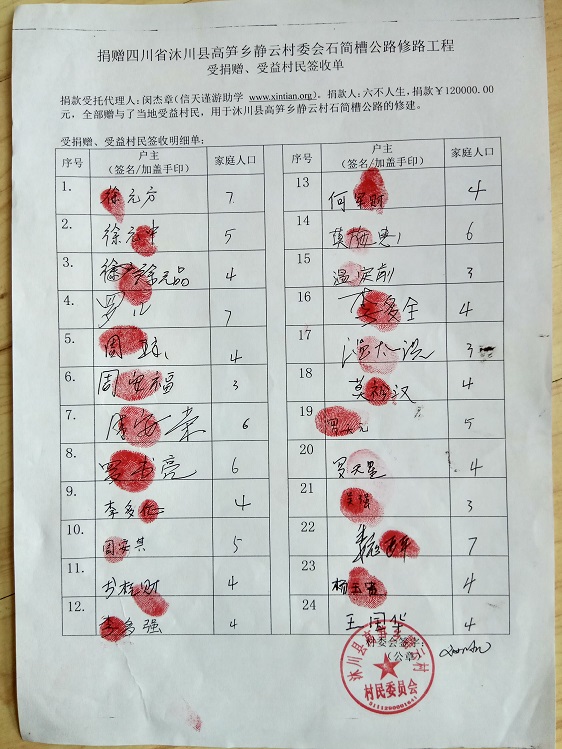 捐赠四川省沐川县高笋乡静云村委会石筒槽公路修路工程
受捐赠、受益村民签收单
捐款受托代理人：闵杰章（信天谨游助学 www.xintian.org）。捐款人：六不人生，捐款￥120000.00
元，全部赠与了当地受益村民，用于沐川县高笋乡静云村石筒槽公路的修建。
受捐赠、受益村民签收明细单：
序号 户主（签名/加盖手印） 家庭人口
1. 徐元方 7
2. 徐 5
3. 徐元品 4
4. 罗 7
5. 周 4
6. 周安福 3
7. 周安荣 6
8. 罗书亮 6
9. 李多 4
10. 周安其 5
11. 财 4
12. 李多强 4
序号 户主（签名/加盖手印） 家庭人口
13 何 财 4
14 6
15 温定 3
16 李多全 4
17 温 3
18 莫 汉 4
19 元 5
20 罗天 4
21 强 3
22 7
23 杨玉 4
24 王国华 4
村委会签字：
（公章
沐川县高笋乡静云村
村民委员会